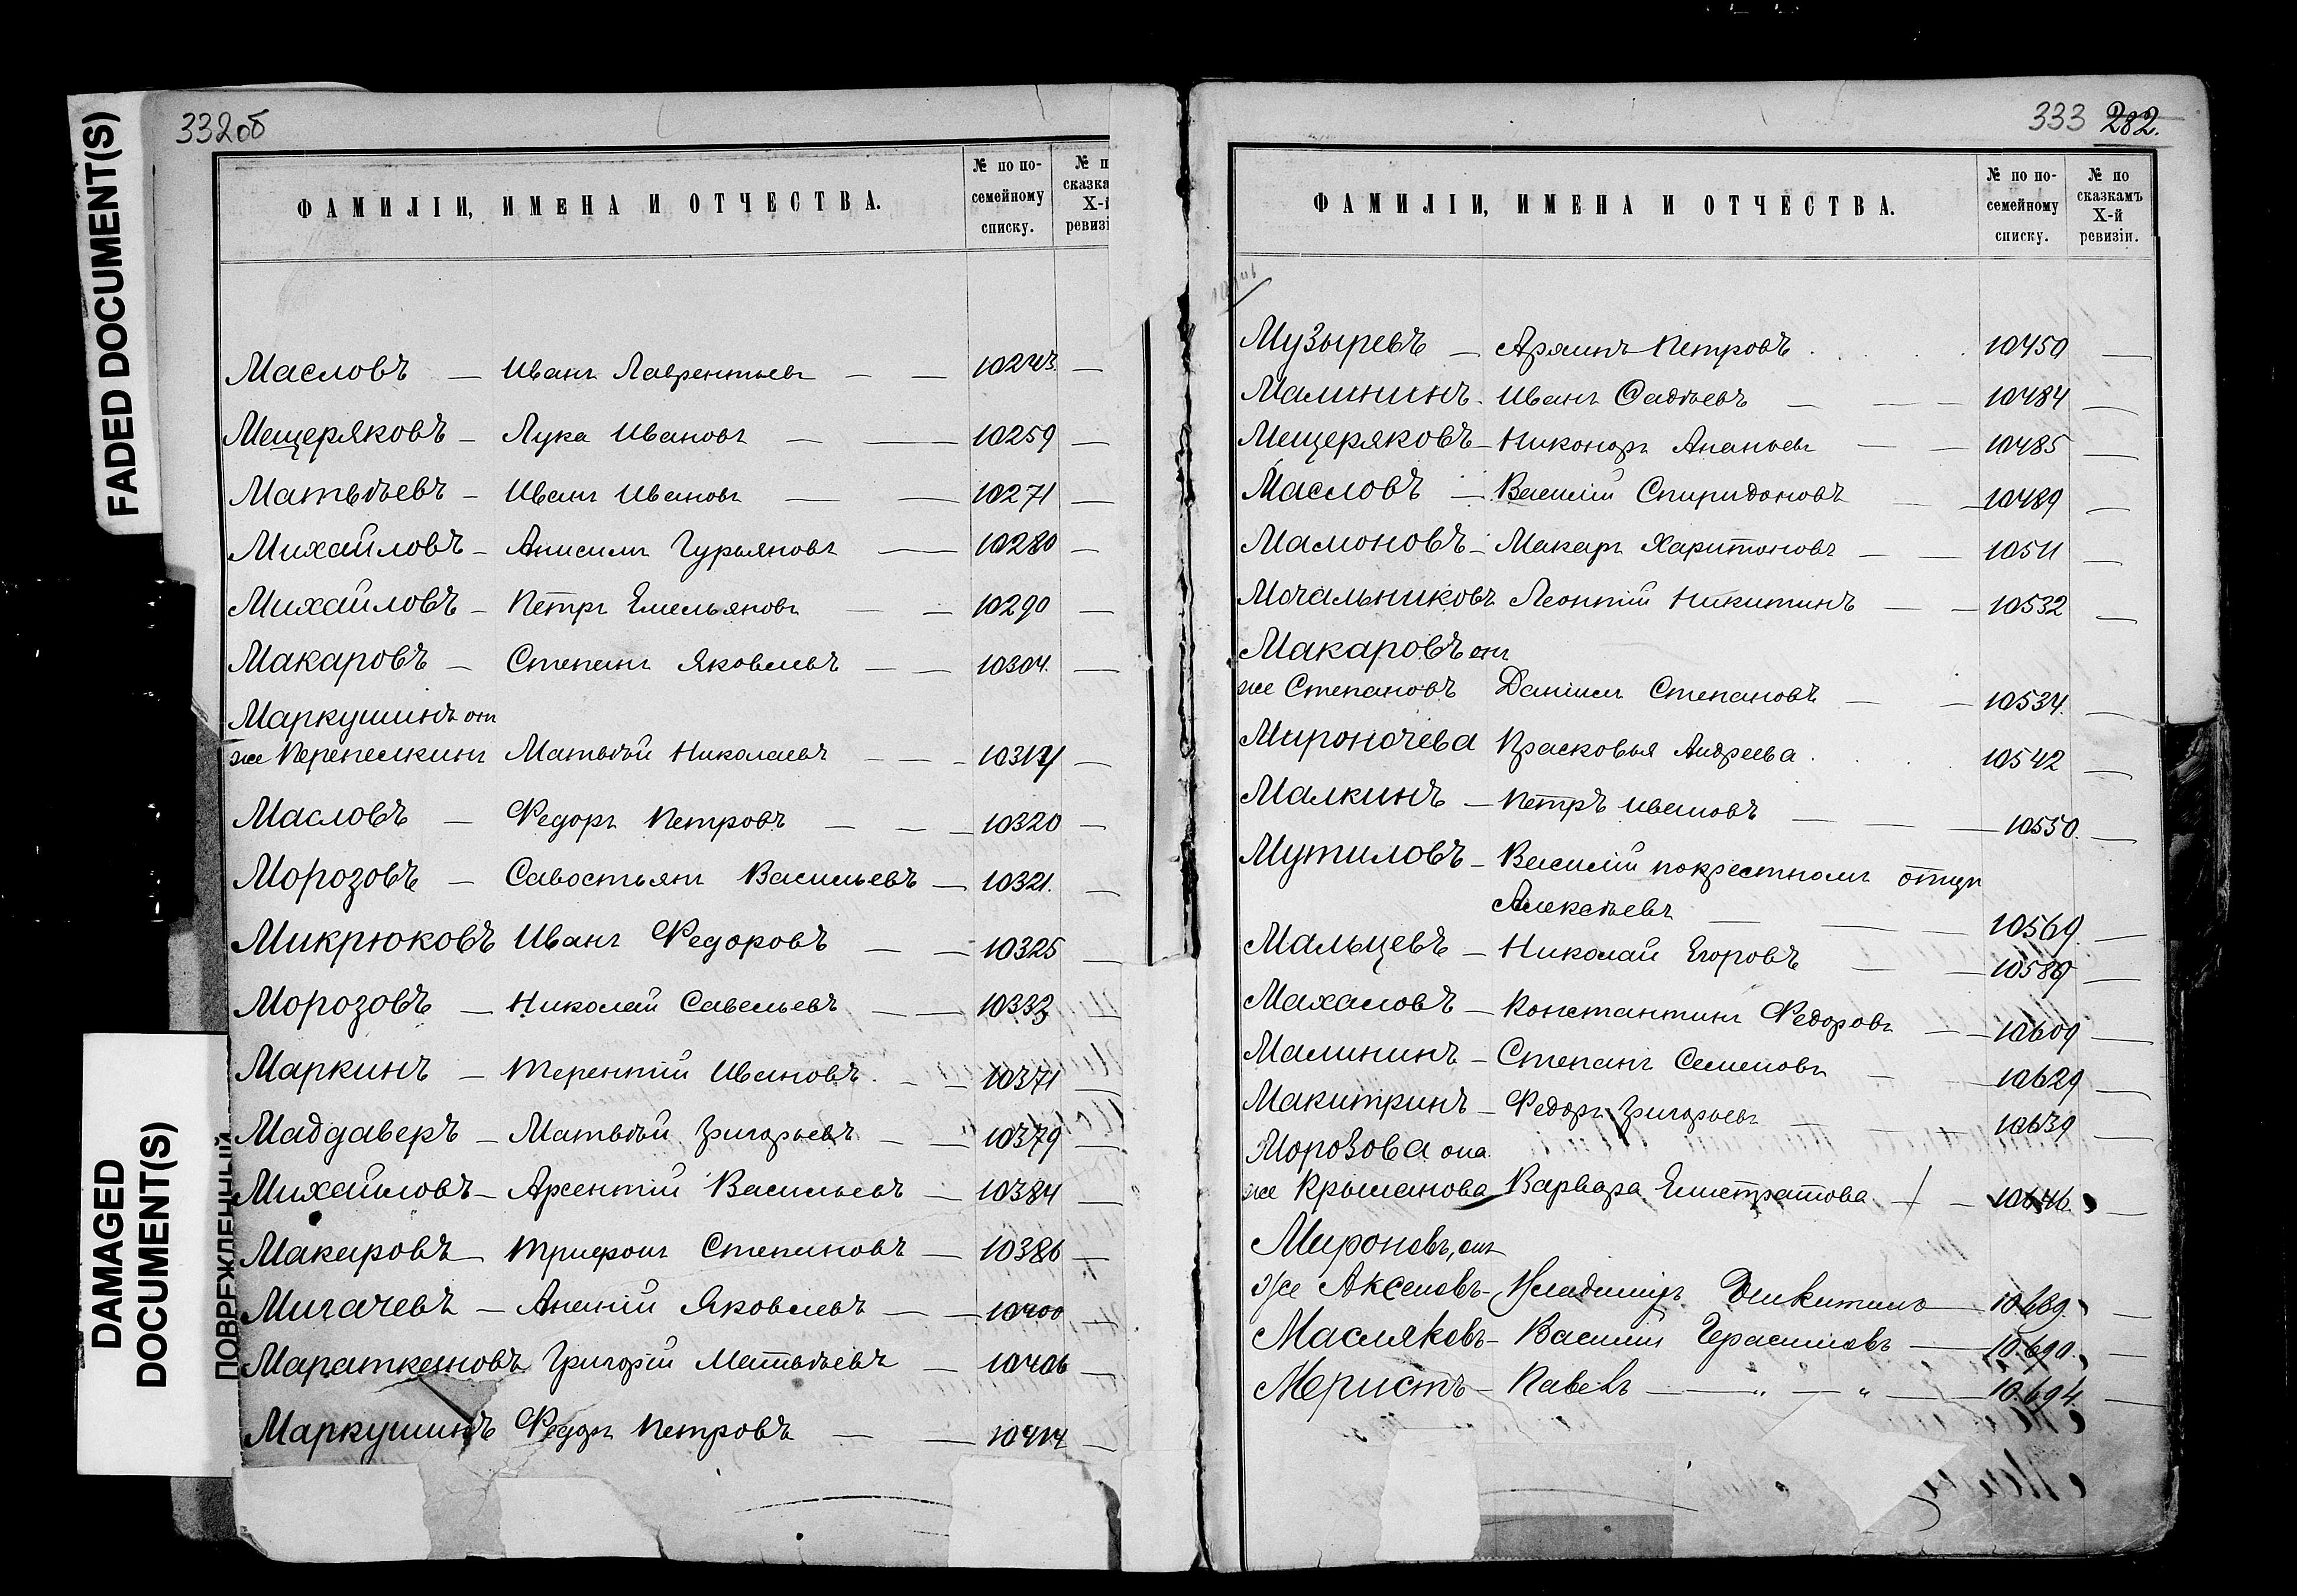 FADED DOCUMENT(S)
DAMAGED
DOCUMENT(S)
ПОВРЕЖДЕННЫЙ
332об
ФАМИЛІИ, ИМЕНА И ОТЧЕСТВА.
№ по по-
семейному
списку.
№ п
сказка
X-й
ревизі
Масловъ — Иванъ Лаврентьевъ — — 10243. —
Мещеряковъ — Лука Ивановъ — — 10259 —
Матвѣевъ — Иванъ Ивановъ — — 10271 —
Михайловъ — Анисимъ Гурьяновъ — 10280 —
Михайловъ — Петръ Емельяновъ — — 10290 —
Макаровъ — Степанъ Яковлевъ — — 10304. —
Маркушинъ он
же Перепелкинъ Матвѣй Николаевъ — — — 10314 —
Масловъ — Федоръ Петровъ — — — 10320 —
Морозовъ — Савостьянъ Васильевъ — 10321. —
Микрюковъ Иванъ Федоровъ — — 10325 —
Морозовъ — Николай Савельевъ — — 10333 —
Маркинъ — Терентій Ивановъ. — — 10371 —
Мадgаверъ — Матвѣй Григорьевъ — — 10379 —
Михайловъ — Арсентій Васильевъ — 10384 —
Макаровъ — Трифонъ Степановъ — 10386 —
Мигачевъ — Ананій Яковлевъ — — 10400 —
Мараткановъ Григорій Матвѣевъ — 10406 —
Маркушинъ Федоръ Петровъ — — 10414 —
333 282.
ФАМИЛІИ, ИМЕНА И ОТЧЕСТВА.
№ по по-
семейному
списку.
№ по
сказкамъ
X-й
ревизіи.
Музыревъ — Петровъ . . . 10450 —
Малининъ. Иванъ Фадѣевъ — — — 10484 —
Мещеряковъ — Никоноръ Ананьевъ — — 10485 —
Масловъ — Василій Спиридоновъ — — 10489 —
Мамоновъ — Макаръ Харитоновъ — — 10511 —
Мочальниковъ Леонтій Никитинъ — — 10532 —
Макаровъ онъ
же Степановъ Даніилъ Степановъ — — 10534. —
Мироночева Прасковья Андреева . . . 10542 —
Малкинъ — Петръ Ивановъ — — — 10550. —
Мутиловъ — Василій по крестномъ отцу
Алексѣевъ — — — 10569. —
Мальцевъ — Николай Егоровъ — — 10589 —
Махаловъ — Константинъ Федоровъ — — 10609 —
Малининъ — Степанъ Семеновъ — — 10629 —
Макитринъ — Федоръ Григорьевъ — — — 10639 —
Морозова она
же Крыманова Варвара Елистратова — — 10646. —
Мироновъ, онъ
же Аксеновъ — Владиміръ Никитинъ — 10689. —
Масляковъ — Василій Герасимовъ — 10.690. —
Меристъ — Павелъ — „ — „ — 10.694. —